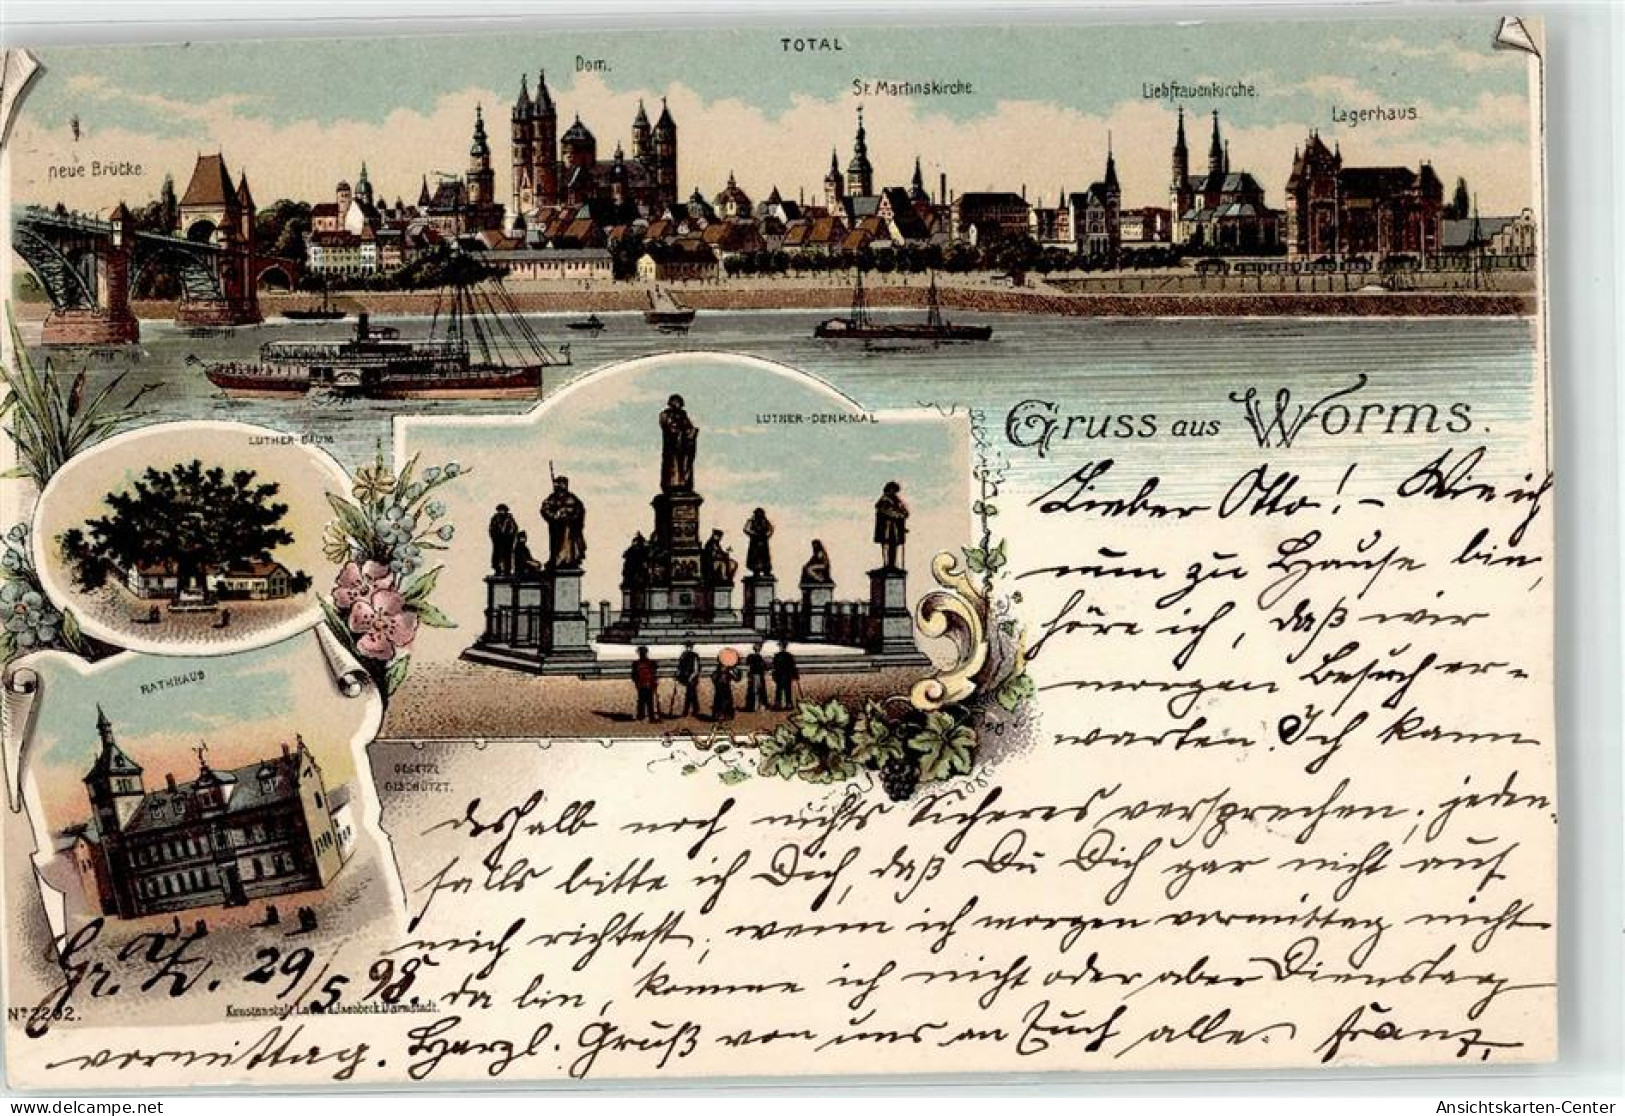 TOTAL
Dom.
St. Martinskirche.
Liebfrauenkirche.
Lagerhaus.
neue Brücke.
Gruss aus Worms.
LUTHER-BAUM
LUTHER-DENKMAL
RATHHAUS
GESETZL
GESCHÜTZT.
Lieber Otto! – Wie ich
nun zu Hause bin,
höre ich, daß wir
morgen Besuch er=
warten. Ich kann
deshalb noch nichts Sicheres versprechen; jeden=
falls bitte ich Dich, daß Du Dich gar nicht auf
mich richtest; wenn ich morgen vormittag nicht
da bin, komme ich nicht oder aber Dienstag
vormittag. Herzl. Gruß von uns an Euch alle. Franz.
29/5 98.
No 2202.
Kunstanstalt Darmstadt.
Ansichtskarten-Center